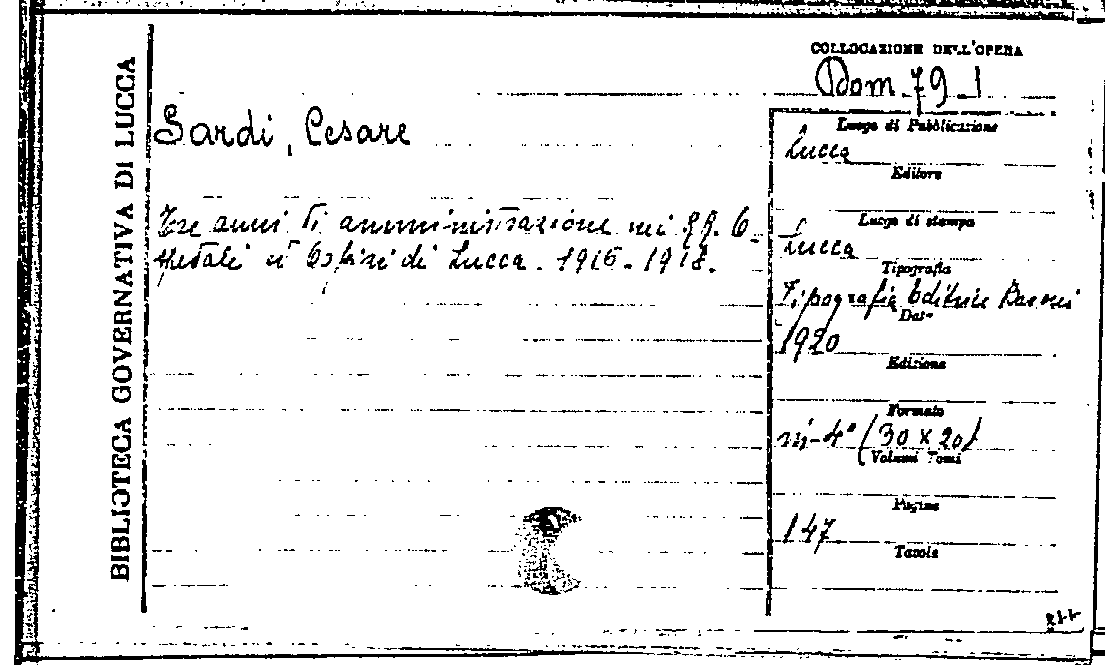 BIBLIOTECA GOVERNATIVA DI LUCCA
COLLOCAZIONE DELL'OPERA
Dom. 79. 1
Sardi, Cesare
Tre anni di amministrazione nei RR. O-
spedali ed Ospizi di Lucca. 1915-1918.
Luogo di Pubblicazione
Lucca
Editore
Luogo di stampa
Lucca
Tipografia
Tipografia Editrice Baroni
Data
1920
Edizione
Formato
in-4° (30 x 20)
Volumi Tomi
Pagine
147
Tavole